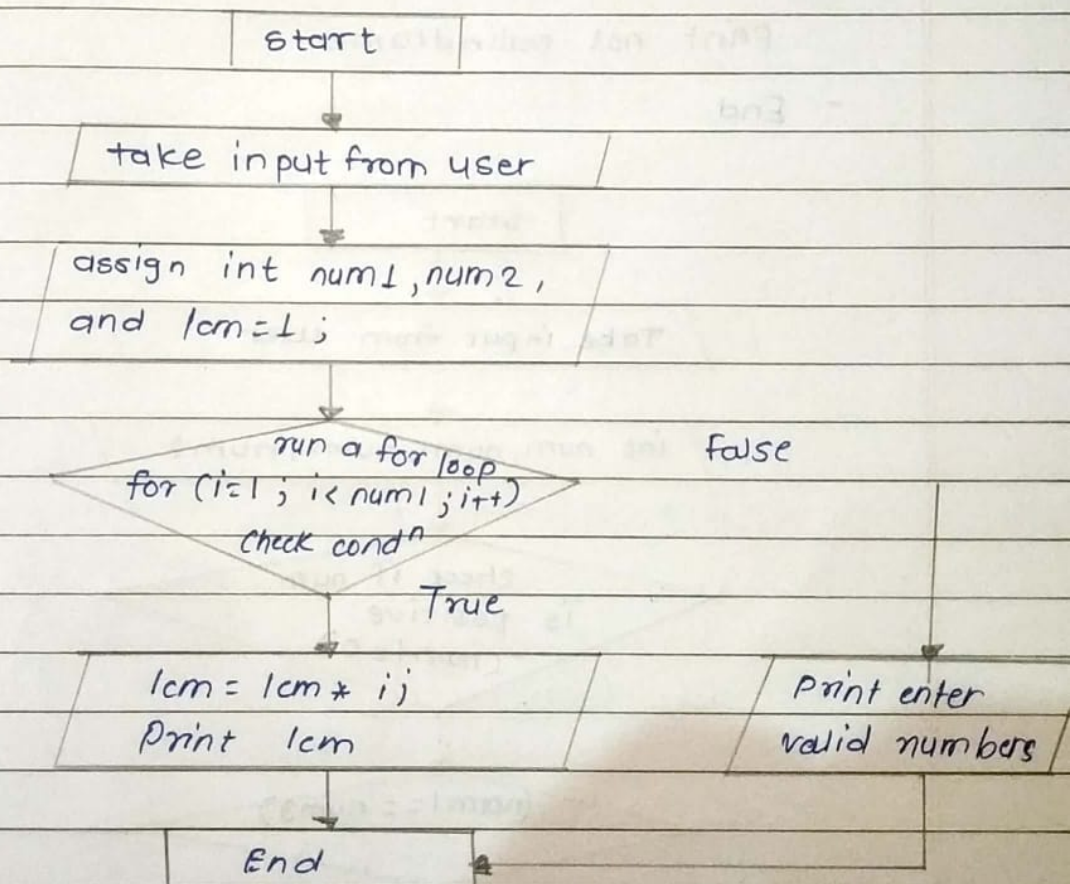 start
take input from user
assign int num1, num2,
and lcm=1;
run a for loop
for (i=1; i< num1; i++)
check condⁿ
False
True
lcm = lcm * i;
Print lcm
Print enter
valid numbers
End